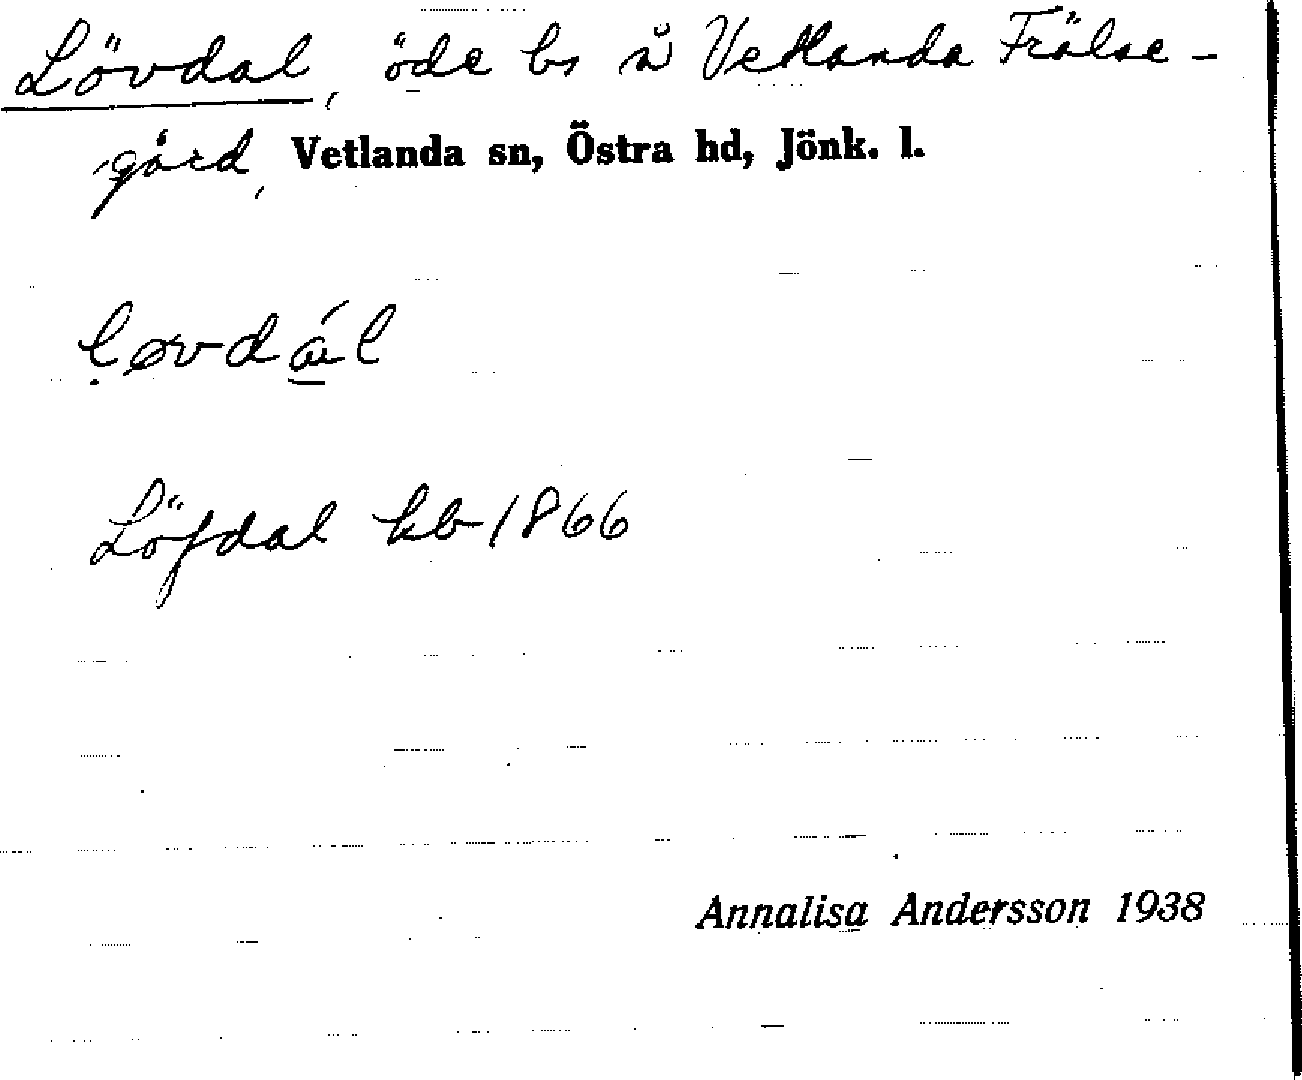 Lövdal, öde bs å Vetlanda Frälse-
gård, Vetlanda sn, Östra hd, Jönk. l.
løvdál
Löfdal kb 1866
Annalisa Andersson 1938